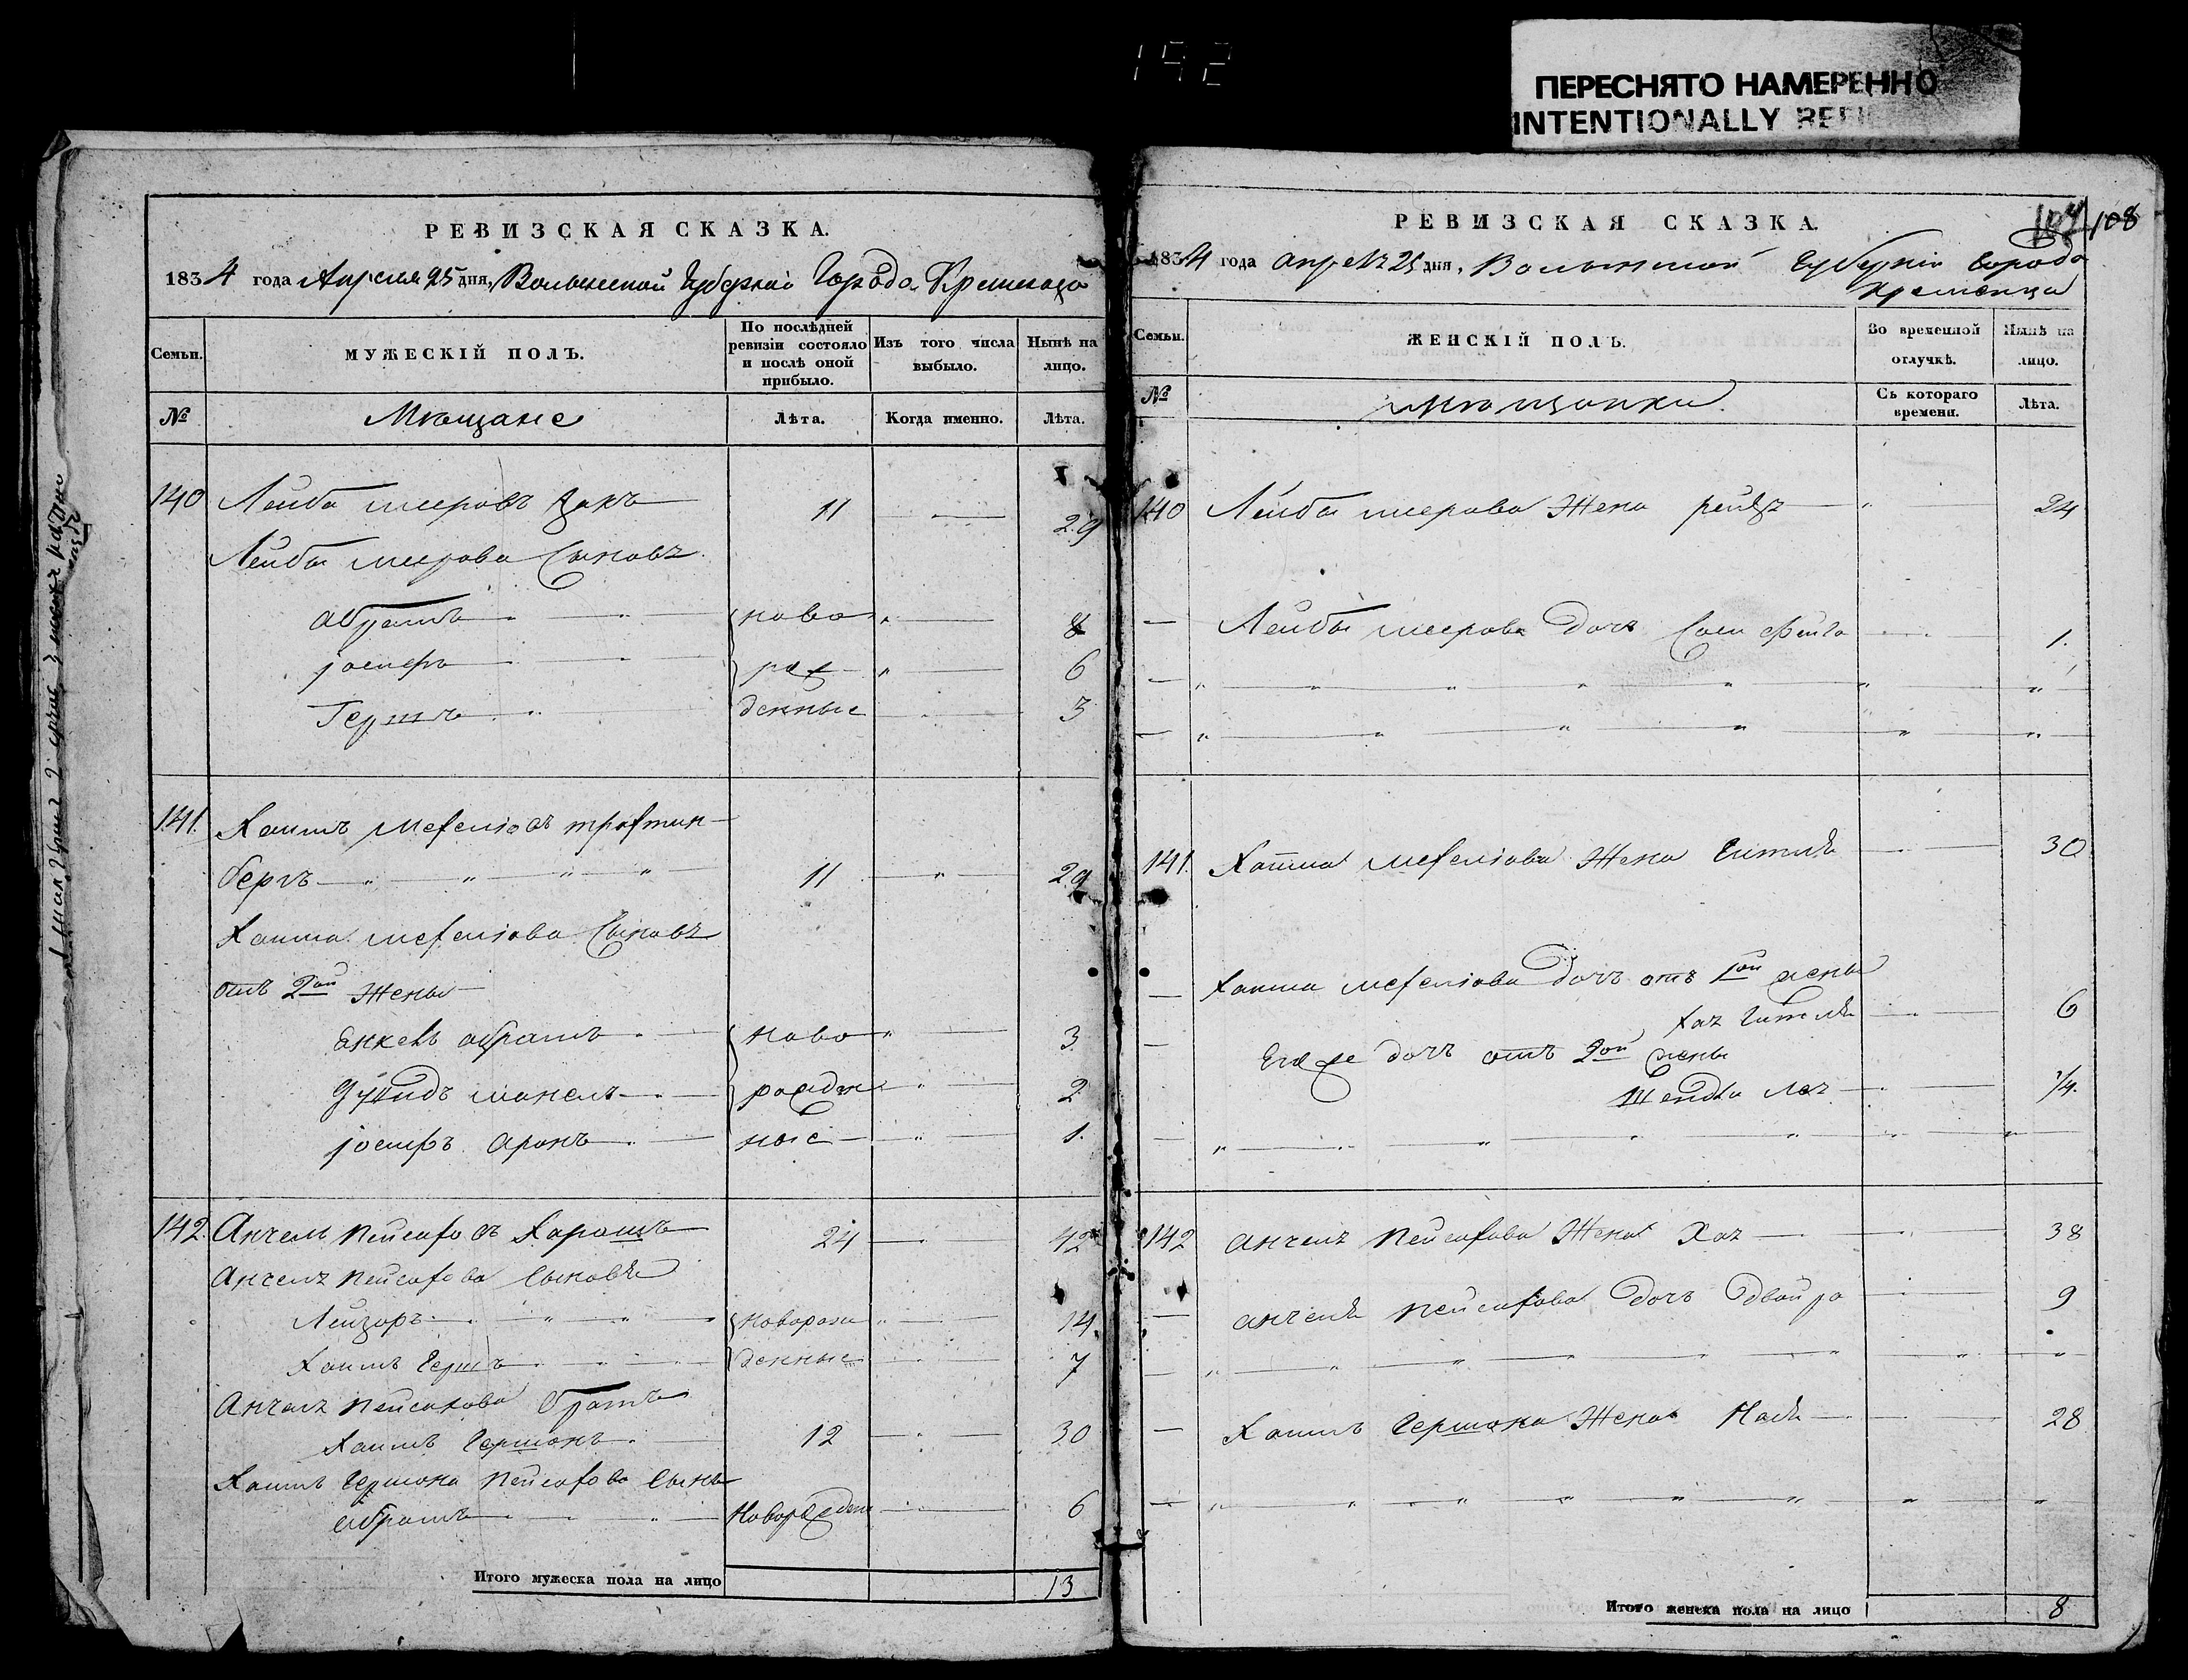 192
ПЕРЕСНЯТО НАМЕРЕННО
INTENTIONALLY
РЕВИЗСКАЯ СКАЗКА.
1834 года Апреля 25 дня, Волынской Губернiи Города Кременца
Семьи.
МУЖЕСКІЙ ПОЛЪ.
По послѣдней ревизіи состояло и послѣ оной прибыло.
Изъ того числа выбыло.
Нынѣ на лицо.
№
Мѣщане
Лѣта.
Когда именно.
Лѣта.
140 Лейба мееровъ Цакъ 11 29
Лейбы меерова Сыновъ
абрамъ ново 8
іосифъ рож 6
Гершъ денные 3
141. Хаимъ
беръ 11 29
Хаима Сыновъ
отъ 2ой Жены
Янкель абрамъ ново 3
рожден 2
іосифъ аронъ ные 1.
142. Анчель Пейсаховъ 24 42
Анчеля Пейсахова Сыновья
Лейзоръ новорож 14
Хаимъ Гершъ денные 7
Анчеля Пейсахова братъ
Хаимъ Гершонъ 12 30
Хаимъ Гершона Пейсахова Сынъ
абрамъ Новорожден 6
Итого мужеска пола на лицо 13
РЕВИЗСКАЯ СКАЗКА.
107 108
1834 года апреля 25 дня, Волынской Губерніи Города
Кременца
Семьи.
ЖЕНСКІЙ ПОЛЪ.
Во временной отлучкѣ.
Нынѣ на лицо.
№
мѣщанки.
Съ котораго времени.
Лѣта.
140 Лейбы меерова Жена рейзя 24
Лейбы меерова дочь фейга 1.
141. Хаима Жена Гитля 30
Хаима дочь отъ 1ой жены
Хая Гитля 6
Его же дочь отъ 2ой жены
Шейндля Лея 1/4.
142 анчеля Пейсахова Жена Хая 38
анчеля Пейсахова дочь двойра 9
Хаимъ Гершона Жена 28
Итого женска пола на лицо 8